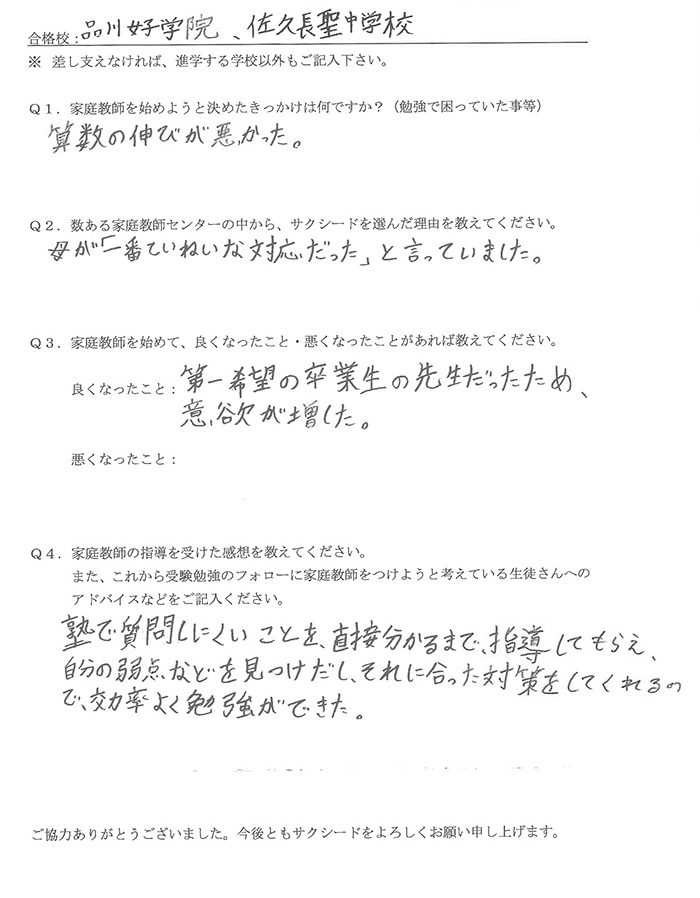 合格校：品川女子学院、佐久長聖中学校
※ 差し支えなければ、進学する学校以外もご記入下さい。
Ｑ１．家庭教師を始めようと決めたきっかけは何ですか？（勉強で困っていた事等）
算数の伸びが悪かった。
Ｑ２．数ある家庭教師センターの中から、サクシードを選んだ理由を教えてください。
母が「一番ていねいな対応だった」と言っていました。
Ｑ３．家庭教師を始めて、良くなったこと・悪くなったことがあれば教えてください。
良くなったこと：第一希望の卒業生の先生だったため、
意欲が増した。
悪くなったこと：
Ｑ４．家庭教師の指導を受けた感想を教えてください。
また、これから受験勉強のフォローに家庭教師をつけようと考えている生徒さんへの
アドバイスなどをご記入ください。
塾で質問しにくいことを、直接分かるまで、指導してもらえ、
自分の弱点などを見つけだし、それに合った対策をしてくれるの
で、効率よく勉強ができた。
ご協力ありがとうございました。今後ともサクシードをよろしくお願い申し上げます。